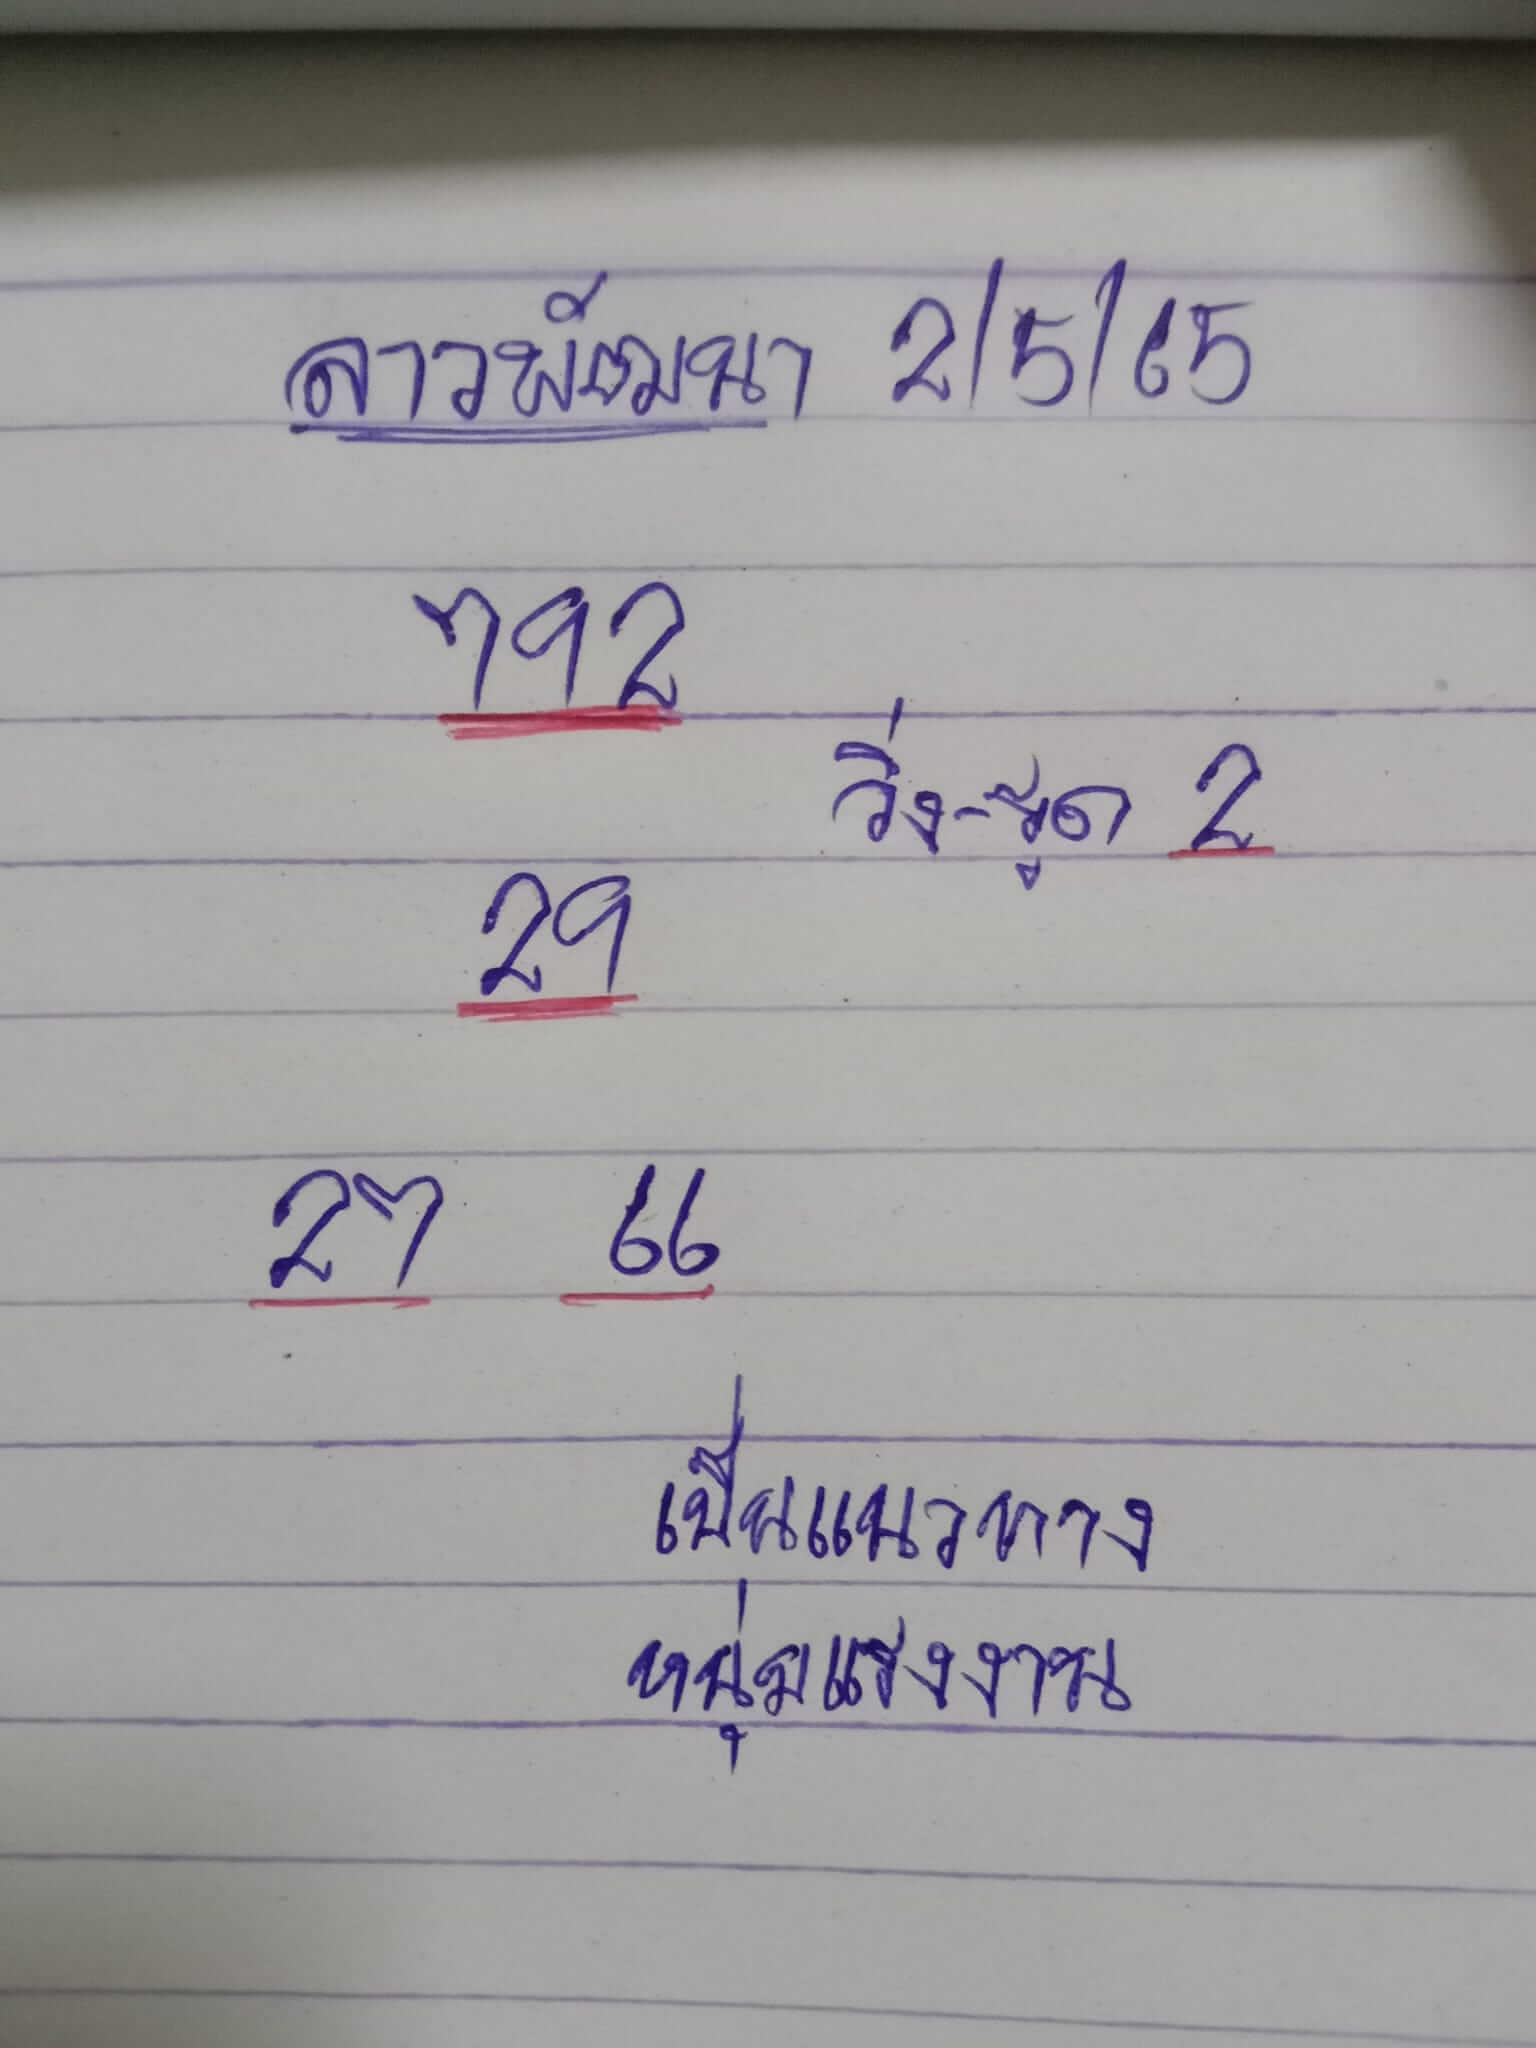 ลาวพัฒนา 2/5/65
792
วิ่ง-รูด 2
29
27 66
เป็นแนวทาง
หนุ่มแรงงาน